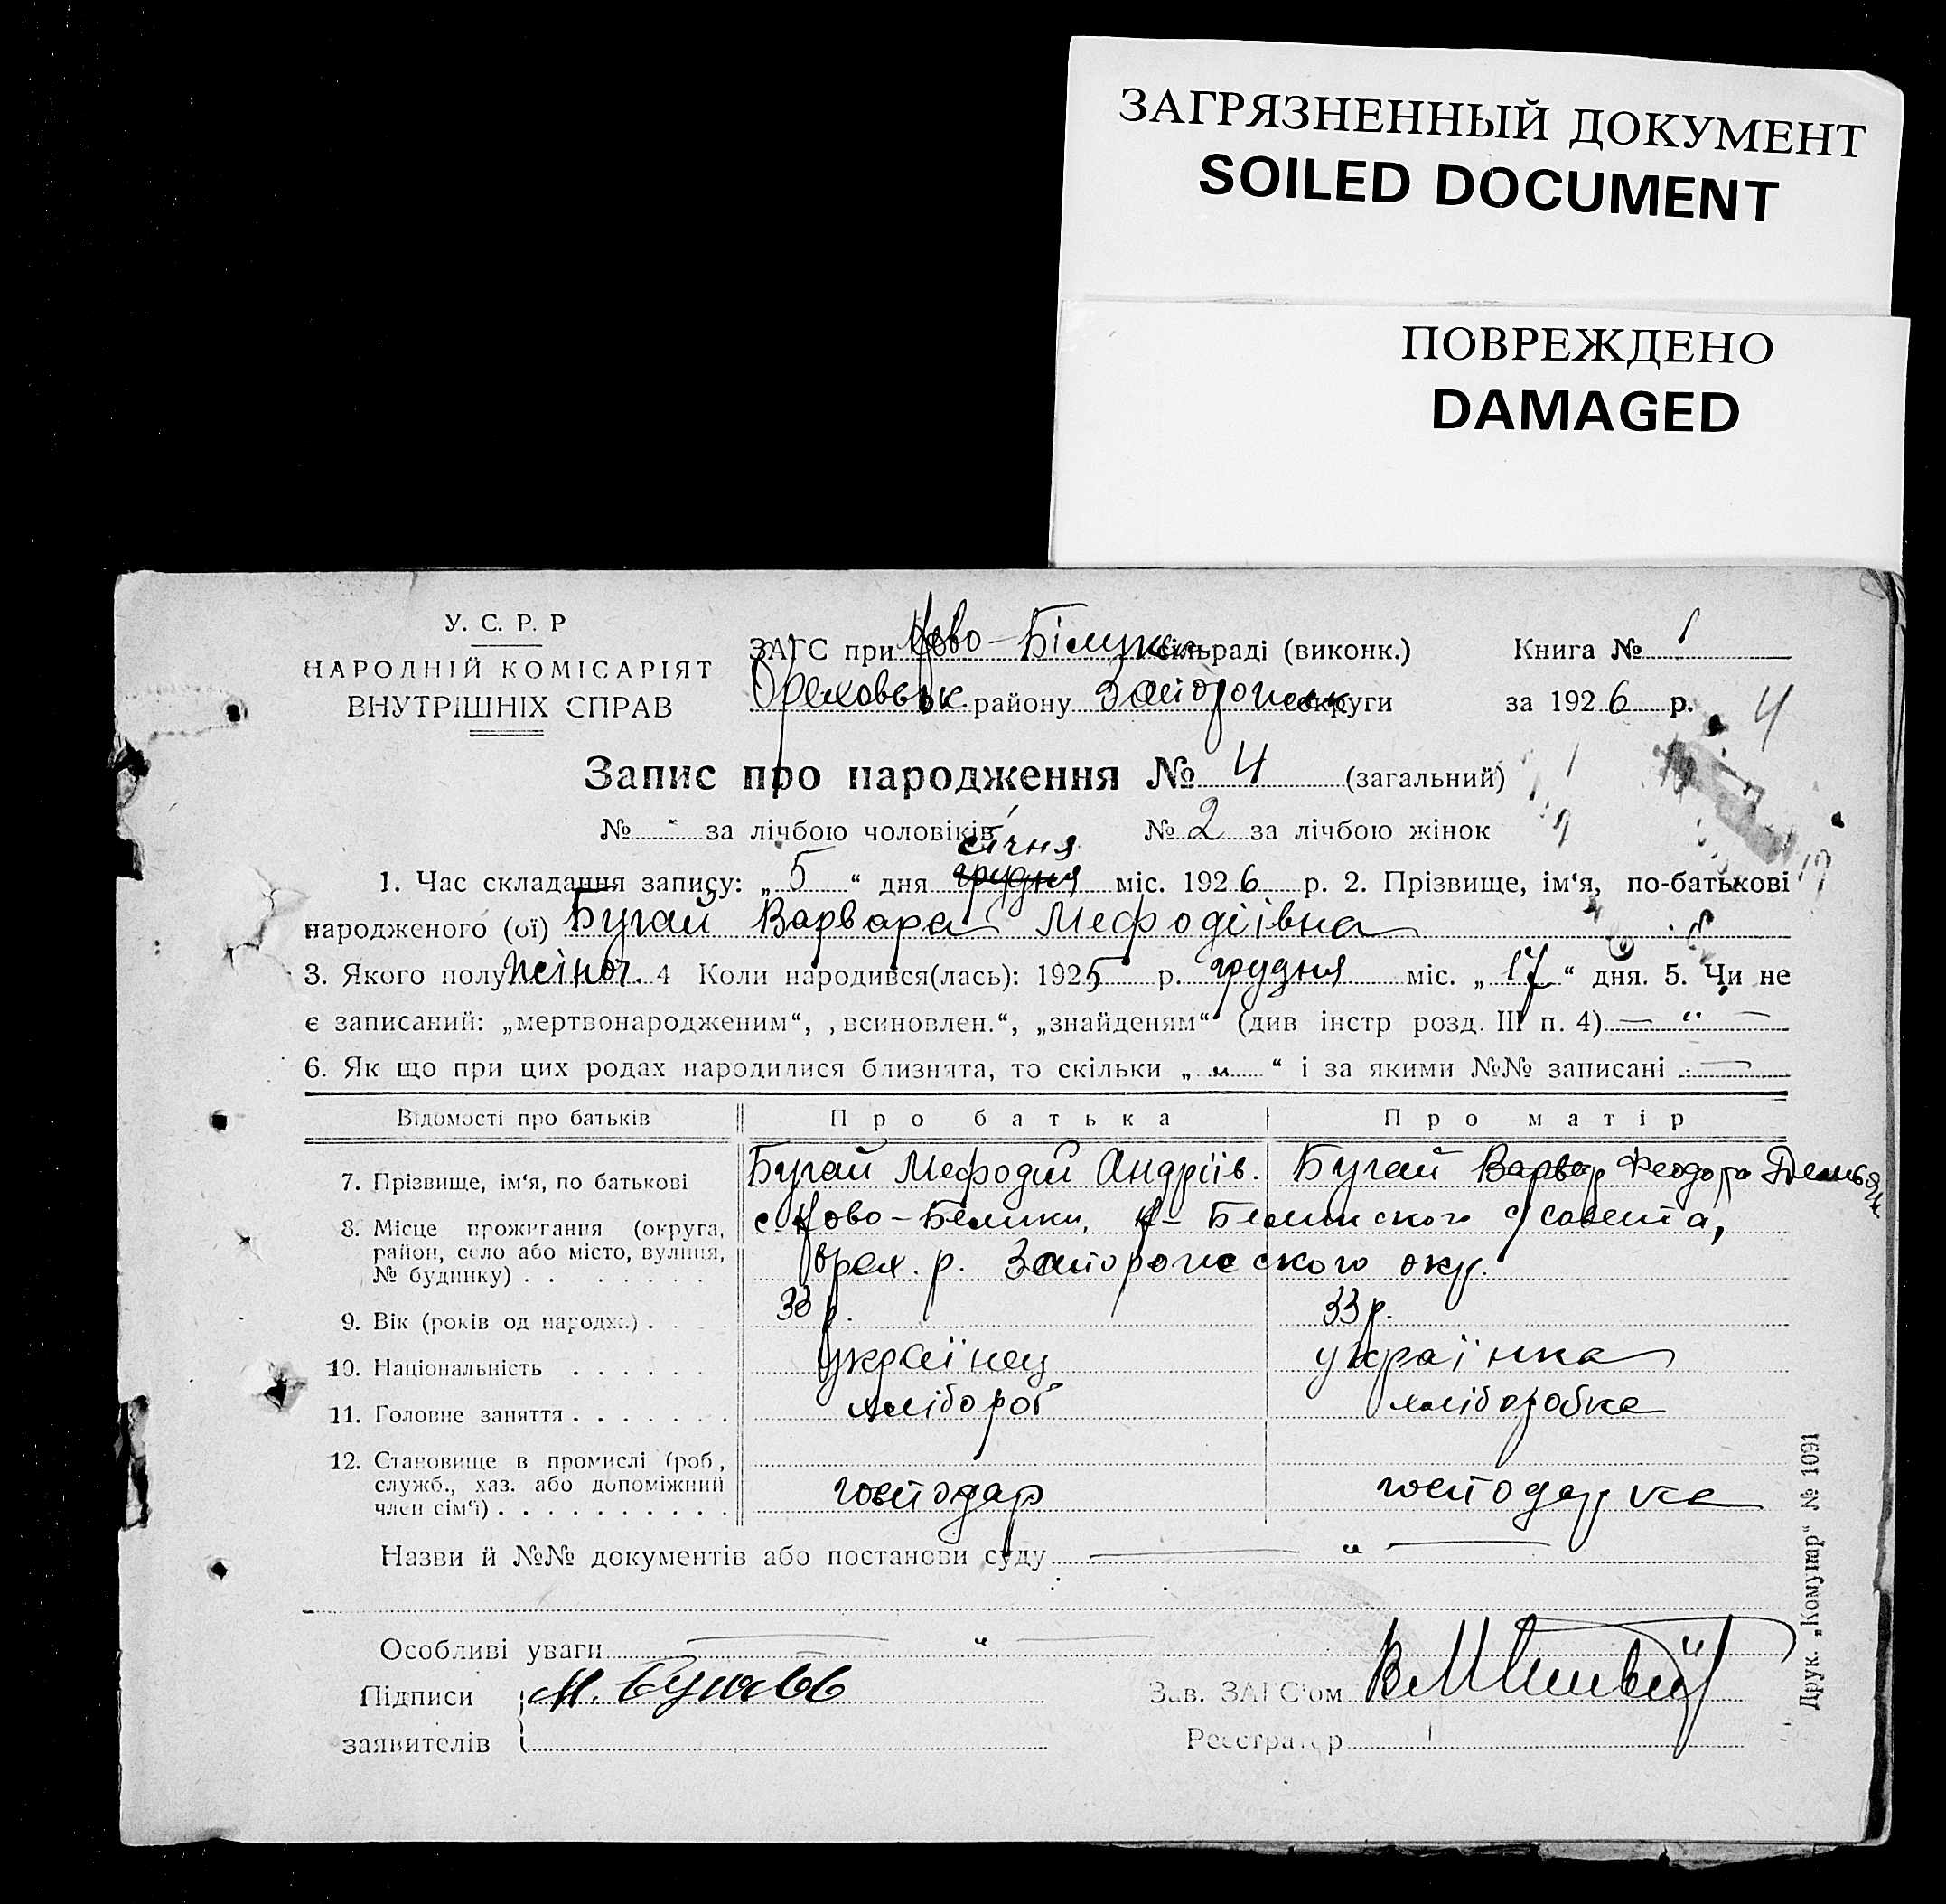 ЗАГРЯЗНЕННЫЙ ДОКУМЕНТ
SOILED DOCUMENT
ПОВРЕЖДЕНО
DAMAGED
У. С. Р. Р
НАРОДНІЙ КОМІСАРІЯТ
ВНУТРІШНІХ СПРАВ
ЗАГС при Ново-Білицьк. сільраді (виконк.) Книга № 1
Ореховськ. району Запорожськ округи за 1926 р. 4
Запис про народження № 4 (загальний)
№ " за лічбою чоловіків № 2 за лічбою жінок
січня
1. Час складання запису: „5“ дня грудня міс. 1926 р. 2. Прізвище, ім‘я, по-батькові
народженого (ої) Бугай Варвара Мефодіівна
3. Якого полу жіноч. 4 Коли народився(лась): 1925 р. грудня міс. „17“ дня. 5. Чи не
є записаний: „мертвонародженим“, „всиновлен.“, „знайденям“ (див інстр розд. III п. 4) — “ —
6. Як що при цих родах народилися близнята, то скільки „ “ і за якими №№ записані —
Відомості про батьків Про батька Про матір
7. Прізвище, ім‘я, по батькові Бугай Мефодій Андріів. Бугай Варвар Феодора
8. Місце прожигання (округа, район, село або місто, вулиця, № будинку) . . с. Ново-Белики, Н-Белинского с/совета,
Орех. р. Запорожского окр.
9. Вік (років од народж.) . 33 р. 33 р.
10. Національність украінец украінка
11. Головне заняття хлібороб хліборобка
12. Становище в промислі (роб., служб., хаз. або допоміжний член сім‘ї) господар господарка
Назви й №№ документів або постанови суду — “ —
Особливі уваги — “ —
Підписи М. Бугай Зав. ЗАГС‘ом
заявителів Реєстратор
Друк. „Комунар“ № 1091